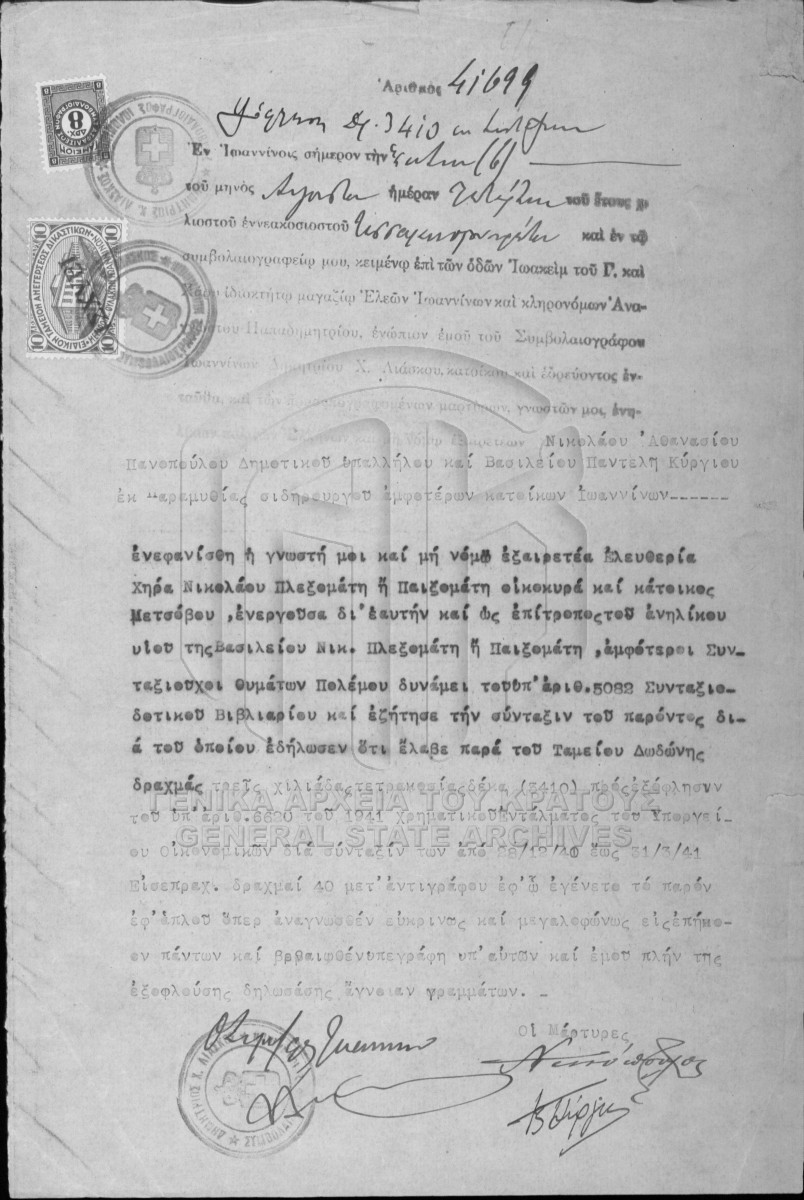 Ἀριθμὸς 41699
Δρ. 3410
Ἐν Ἰωαννίνοις σήμερον τὴν ἕκτην (6)
τοῦ μηνὸς Αὐγούστου ἡμέραν Τετάρτην τοῦ ἔτους χι-
λιοστοῦ ἐννεακοσιοστοῦ καὶ ἐν τῷ
συμβολαιογραφείῳ μου, κειμένῳ ἐπὶ τῶν ὁδῶν Ἰωακεὶμ τοῦ Γ. καὶ
ἰδιοκτήτῳ μαγαζίῳ Ἐλεῶν Ἰωαννίνων καὶ κληρονόμων Ἀνα-
Παπαδημητρίου, ἐνώπιον ἐμοῦ τοῦ Συμβολαιογράφου
Ἰωαννίνων Δημητρίου Χ. Λιάσκου, κατοίκου καὶ ἑδρεύοντος ἐν-
ταῦθα, καὶ τῶν μαρτύρων, γνωστῶν μοι, ἐνη-
Νικολάου Ἀθανασίου
Πανοπούλου Δημοτικοῦ ὑπαλλήλου καί Βασιλείου Παντελῆ Κύργιου
ἐκ Παραμυθίας σιδηρουργοῦ ἀμφοτέρων κατοίκων Ἰωαννίνων------
ἐνεφανίσθη ἡ γνωστή μοι καί μή νόμῳ ἐξαιρετέα Ἐλευθερία
Χήρα Νικολάου Πλεξομάτη ἤ Παιξομάτη οἰκοκυρά καί κάτοικος
Μετσόβου ,ἐνεργοῦσα δι'ἑαυτήν καί ὡς ἐπίτροπος τοῦ ἀνηλίκου
υἱοῦ της Βασιλείου Νικ. Πλεξομάτη ἤ Παιξομάτη ,ἀμφότεροι Συν-
ταξιοῦχοι Θυμάτων Πολέμου δυνάμει τοῦ ὑπ'ἀριθ.5082 Συνταξιο-
δοτικοῦ Βιβλιαρίου καί ἐζήτησε τήν σύνταξιν τοῦ παρόντος δι-
ά τοῦ ὁποίου ἐδήλωσεν ὅτι ἔλαβε παρά τοῦ Ταμείου Δωδώνης
δραχμάς τρεῖς χιλιάδας τετρακοσίας δέκα (3410) πρός ἐξόφλησιν
τοῦ ὑπ'ἀριθ.6620 τοῦ 1941 χρηματικοῦ ἐντάλματος τοῦ Ὑπουργεί-
ου Οἰκονομικῶν διά σύνταξίν των ἀπό 28/12/40 ἕως 31/3/41
Εἰσεπραχ. δραχμαί 40 μετ'ἀντιγράφου ἐφ'ᾧ ἐγένετο τό παρόν
ἐφ'ἁπλοῦ ὅπερ ἀναγνωσθέν εὐκρινῶς καί μεγαλοφώνως εἰς ἐπήκο-
ον πάντων καί βεβαιωθέν ὑπεγράφη ὑπ'αὐτῶν καί ἐμοῦ πλήν τῆς
ἐξοφλούσης δηλωσάσης ἄγνοιαν γραμμάτων. -
Οἱ Μάρτυρες
ΓΕΝΙΚΑ ΑΡΧΕΙΑ ΤΟΥ ΚΡΑΤΟΥΣ
GENERAL STATE ARCHIVES
8 ΔΡΧ.
10
ΕΙΔΙΚΟΝ ΤΑΜΕΙΟΝ ΑΝΕΓΕΡΣΕΩΣ ΔΙΚΑΣΤΙΚΩΝ
ΔΗΜΗΤΡΙΟΣ Χ. ΛΙΑΣΚΟΣ